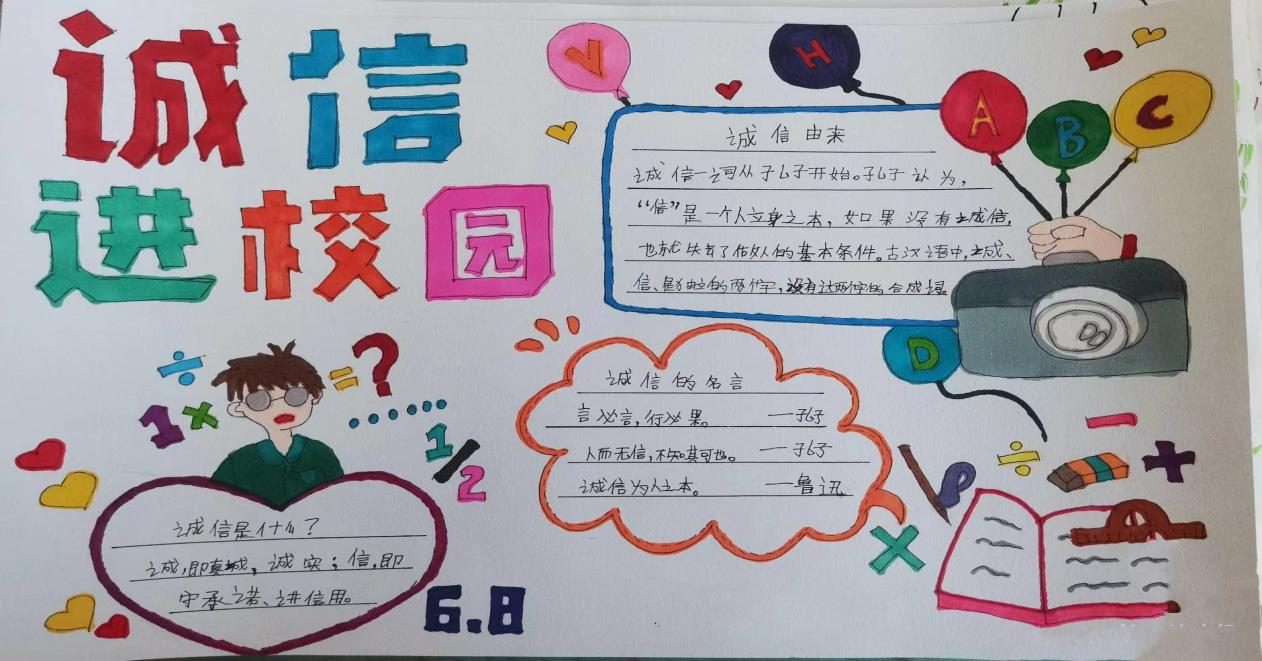 诚信
进校园
V
H
A
B
C
D
诚信由来
诚信一词从孔子开始。孔子认为,
“信”是一个人立身之本,如果没有诚信,
也就失去了做人的基本条件。古汉语中,诚、
信、是独立的两个字,没有这两字的合成词
诚信的名言
言必信,行必果。——孔子
人而无信,不知其可也。——孔子
诚信为人之本。——鲁迅
÷
1×
=?
……
1/2
诚信是什么?
诚,即真诚,诚实;信,即
守承诺、讲信用。
6.8
÷
-
+
×